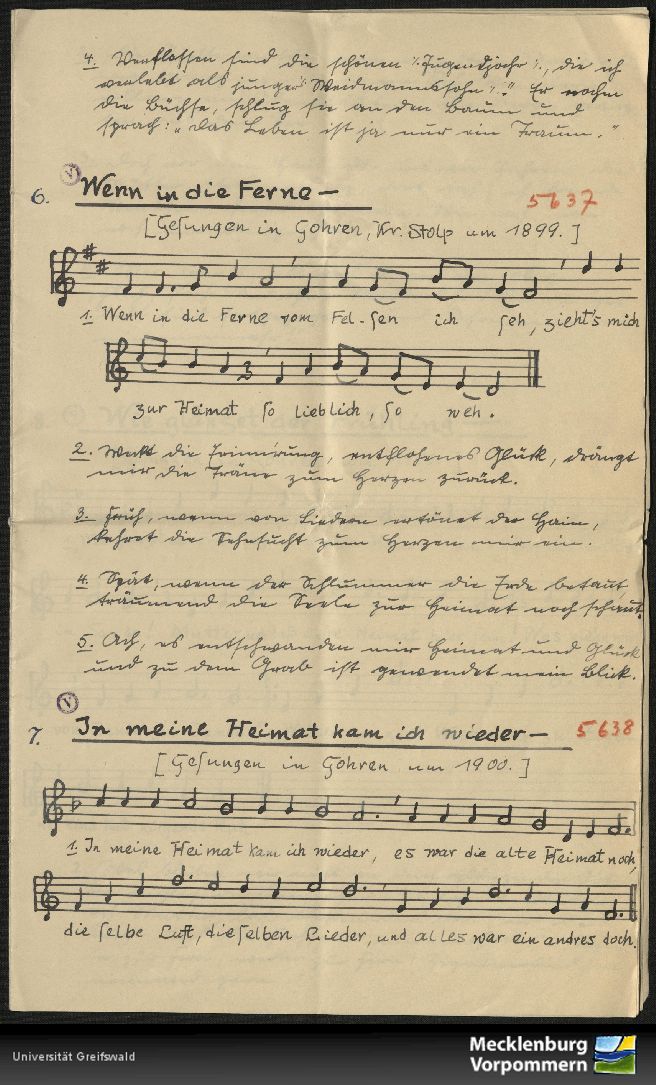 4. Verflossen sind die schönen /: Jugendjahr :/, die ich
verlebt als junger /: Weidmannssohn :/." Er nahm
die Büchse, schlug sie an den Baum und
sprach: „das Leben ist ja nur ein Traum."
V
6. Wenn in die Ferne — 5637
[Gesungen in Gohren, Kr. Stolp um 1899.]
1. Wenn in die Ferne vom Fel-sen ich seh, zieht's mich
zur Heimat so lieblich, so weh.
2. Weckt die Erinnrung, entflohenes Glück, drängt
mir die Träne zum Herzen zurück.
3. Früh, wenn von Liedern ertönet der Hain,
kehret die Sehnsucht zum Herzen mir ein.
4. Spät, wenn der Schlummer die Erde betaut,
träumend die Seele zur Heimat noch schaut.
5. Ach, es entschwanden mir Heimat und Glück
und zu dem Grab ist gewendet mein Blick.
V
7. In meine Heimat kam ich wieder — 5638
[Gesungen in Gohren um 1900.]
1. In meine Heimat kam ich wieder, es war die alte Heimat noch,
die selbe Luft, dieselben Lieder, und alles war ein andres doch.
Universität Greifswald
Mecklenburg
Vorpommern